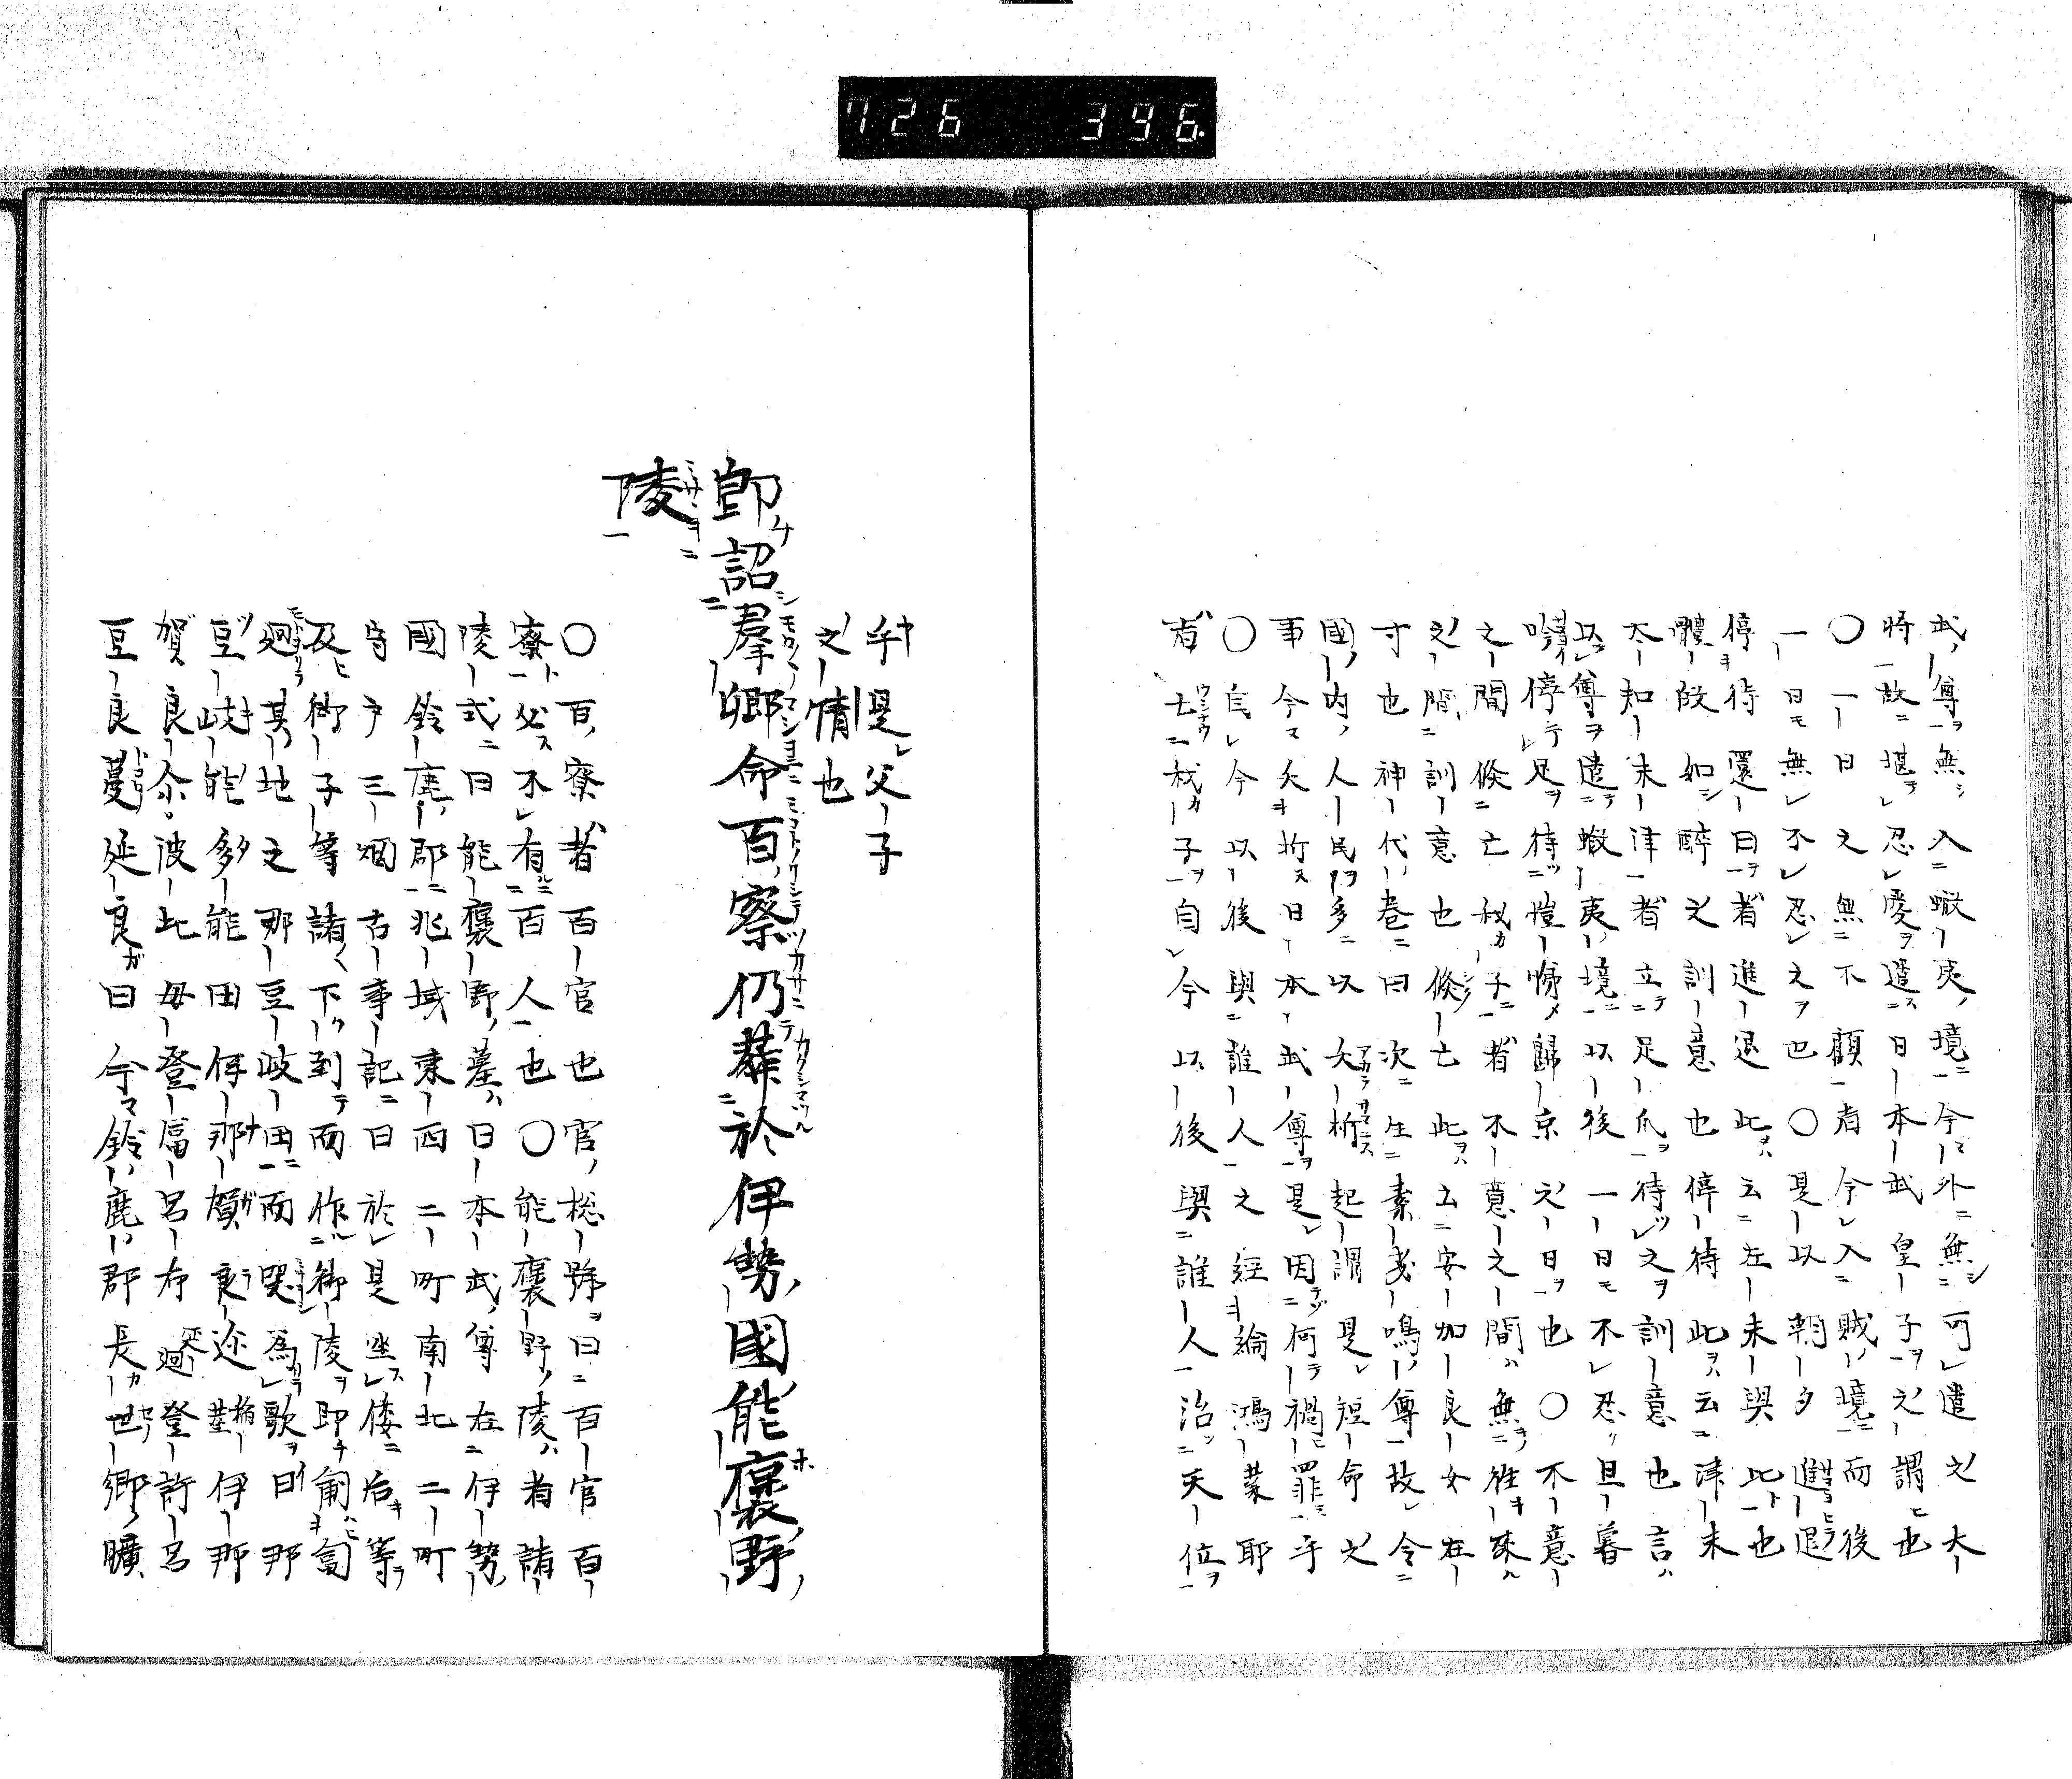 726 396.
武尊無入蝦夷境今外無可遣之大
将故堪忍愛遣日本武皇子之謂也
〇一日之無不顧者今入賊境而後
一日無不忍之也〇是以朝夕進退
停待還日者進退此云左未與此也
體故如醉之訓意也停待此云津未
大知未津者立足爪待之訓意也言
以尊遣蝦夷境以後一日不忍旦暮
停足待愷悌歸京之日也〇不意
之間倏亡我子者不意之間無往来
之間訓意也倏亡此云安加良女在
寸也神代巻曰次生素戔鳴尊故令
國内人民多以夭析起謂是短命之
事今夭折日本武尊是因何禍罪乎
〇自今以後與誰人之經綸鴻蒙耶
者亡我子自今以後與誰人治天位
乎是父子
之情也
即詔羣卿命百寮仍葬於伊勢國能褒野
陵
〇百寮者百官也官総號曰百官百
寮必不有百人也〇能褒野陵者諸
陵式曰能褒野墓日本武尊在伊勢
國鈴鹿郡兆域東西二町南北二町
守戸三烟古事記曰於是坐倭后等
及御子等諸下到而作御陵即匍匐
廻其地之那豆岐田而哭為歌曰那
豆岐能多能田伊那賀良迩稲莖伊那
賀良尓波比母登富呂布廻登許呂
豆良蔓延良曰今鈴鹿郡長世郷曠